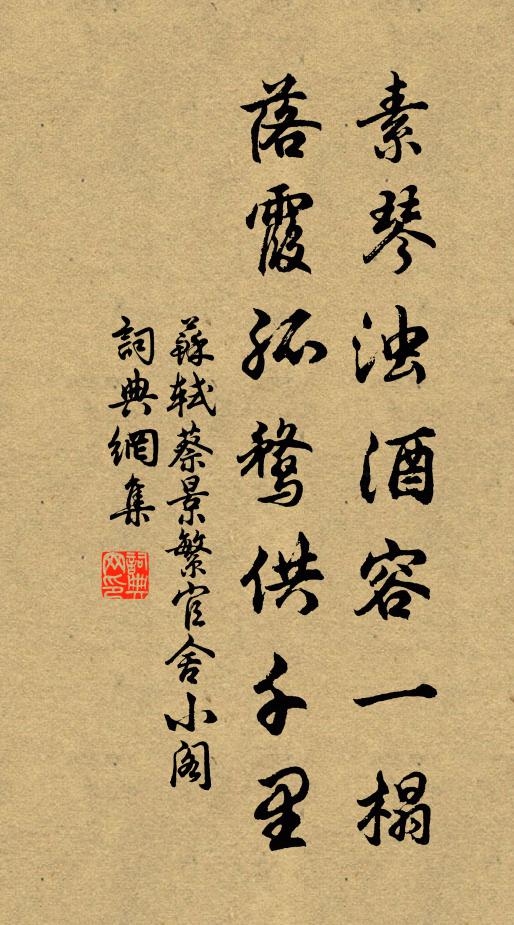 素琴浊酒容一榻
落霞孤鹜供千里
蘇軾蔡景繁官舍小閣
詞典網集
詞典网印